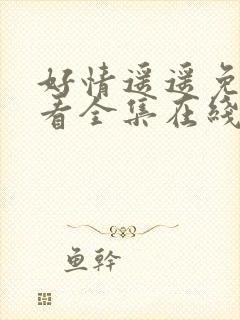 好情遥遥免
看全集在线
鱼幹